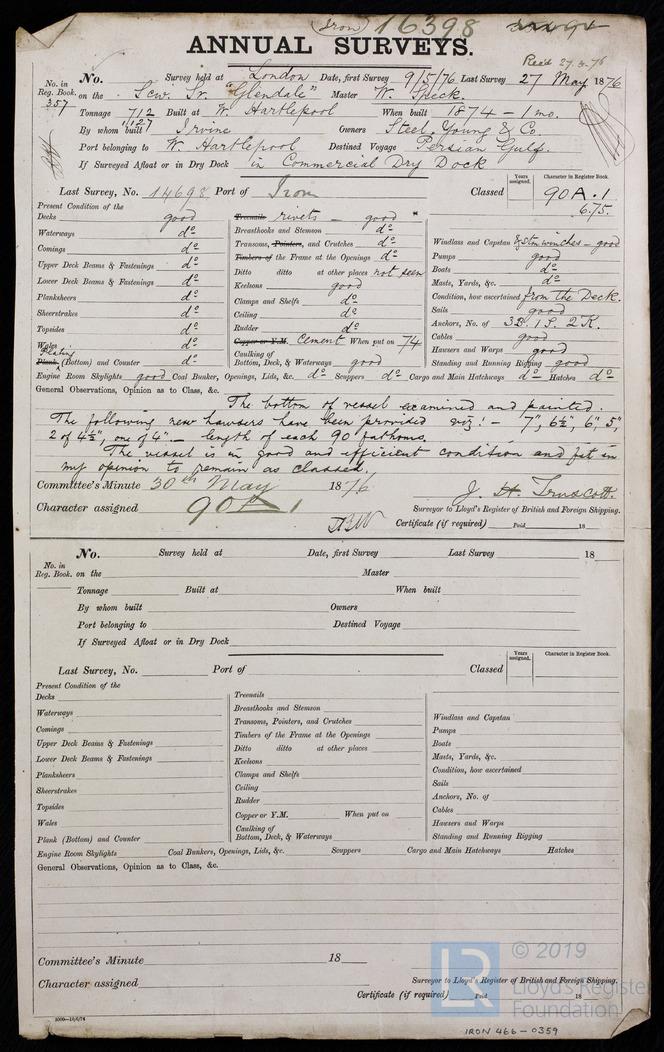 (Iron) 16398
ANNUAL SURVEYS.
Recd 27.5.76
No. Survey held at London Date, first Survey 9/5/76 Last Survey 27 May 1876
No. in Reg. Book. 357 on the Scw. Sr. "Glendale" Master W. Speck.
Tonnage 712 1127 Built at W. Hartlepool When built 1874 - 1 mo.
By whom built Irvine Owners Steel, Young & Co.
Port belonging to W. Hartlepool Destined Voyage Persian Gulf.
If Surveyed Afloat or in Dry Dock in Commercial Dry Dock
Last Survey, No. 14698 Port of Iron Classed
Years assigned. Character in Register Book.
90 A.1
6.75.
Present Condition of the
Decks good
Waterways do
Comings do
Upper Deck Beams & Fastenings do
Lower Deck Beams & Fastenings do
Planksheers do
Sheerstrakes do
Topsides do
Wales do
Plating
Plank (Bottom) and Counter do
Treenails rivets - good "
Breasthooks and Stemson do
Transoms, Pointers, and Crutches do
Timbers of the Frame at the Openings do
Ditto ditto at other places not seen
Keelsons good
Clamps and Shelfs do
Ceiling do
Rudder do
Copper or Y.M. Cement When put on 74
Caulking of
Bottom, Deck, & Waterways good
Windlass and Capstan & stm winches - good
Pumps good
Boats do
Masts, Yards, &c. do
Condition, how ascertained from the Deck.
Sails good
Anchors, No. of 3B. 1S. 2K.
Cables good
Hawsers and Warps good
Standing and Running Rigging good
Engine Room Skylights good Coal Bunker, Openings, Lids, &c. do Scuppers do Cargo and Main Hatchways do Hatches do
General Observations, Opinion as to Class, &c.
The bottom of vessel examined and painted.
The following new hawsers have been provided viz:- 7", 6½", 6", 5",
2 of 4½", one of 4" - length of each 90 fathoms.
The vessel is in good and efficient condition and fit in
my opinion to remain as classed.
Committee's Minute 30th May 1876
J. H. Truscott.
Character assigned 90 A 1
Surveyor to Lloyd's Register of British and Foreign Shipping.
Certificate (if required) Paid 18
No. Survey held at Date, first Survey Last Survey 18
No. in Reg. Book. on the Master
Tonnage Built at When built
By whom built Owners
Port belonging to Destined Voyage
If Surveyed Afloat or in Dry Dock
Last Survey, No. Port of Classed
Years assigned. Character in Register Book.
Present Condition of the
Decks
Waterways
Comings
Upper Deck Beams & Fastenings
Lower Deck Beams & Fastenings
Planksheers
Sheerstrakes
Topsides
Wales
Plank (Bottom) and Counter
Treenails
Breasthooks and Stemson
Transoms, Pointers, and Crutches
Timbers of the Frame at the Openings
Ditto ditto at other places
Keelsons
Clamps and Shelfs
Ceiling
Rudder
Copper or Y.M. When put on
Caulking of
Bottom, Deck, & Waterways
Windlass and Capstan
Pumps
Boats
Masts, Yards, &c.
Condition, how ascertained
Sails
Anchors, No. of
Cables
Hawsers and Warps
Standing and Running Rigging
Engine Room Skylights Coal Bunkers, Openings, Lids, &c. Scuppers Cargo and Main Hatchways Hatches
General Observations, Opinion as to Class, &c.
Committee's Minute 18
Character assigned
Surveyor to Lloyd's Register of British and Foreign Shipping.
Certificate (if required) Paid 18
LR
© 2019
Lloyd's Register
Foundation
IRON 466-0359